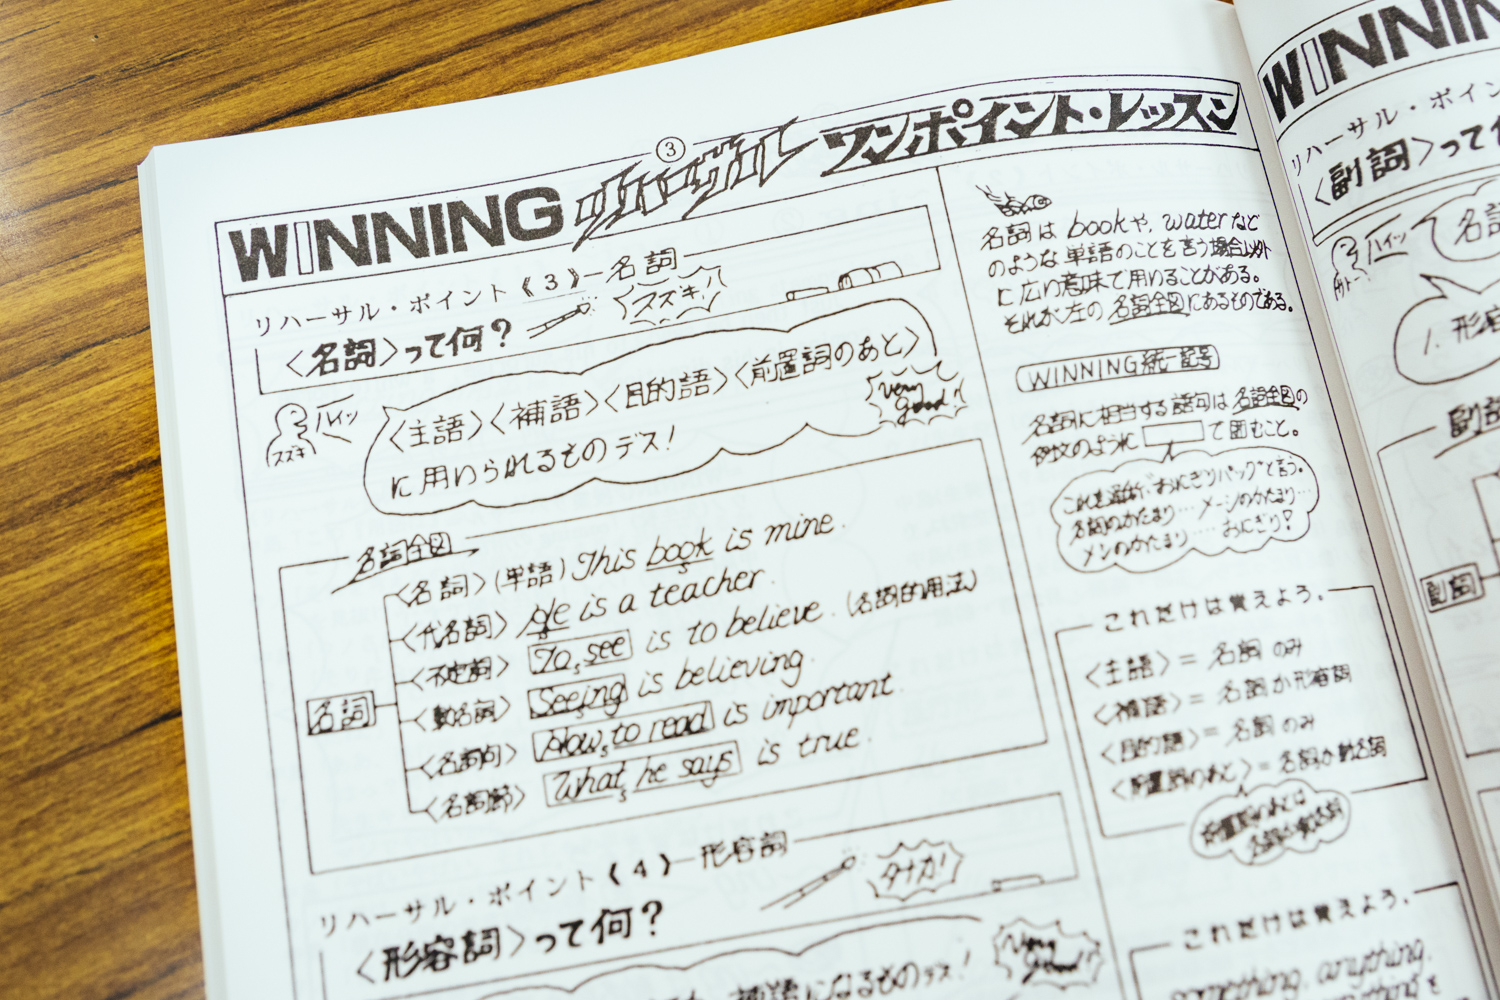 WINNING リハーサル ③ ワンポイント・レッスン
リハーサル・ポイント《3》―名詞
〈名詞〉って何？
スズキ！
ハイッ
スズキ
〈主語〉〈補語〉〈目的語〉〈前置詞のあと〉
に用いられるものデス！
Very
good!
名詞全図
名詞
〈名詞〉(単語) This book is mine.
〈代名詞〉 He is a teacher.
〈不定詞〉 To see is to believe. (名詞的用法)
〈動名詞〉 Seeing is believing.
〈名詞句〉 How to read is important.
〈名詞節〉 What he says is true.
リハーサル・ポイント《4》―形容詞
〈形容詞〉って何？
タナカ！
補語になるものデス！
Very
good!
名詞は bookや, waterなど
のような単語のことを言う場合以外
に広い意味で用いることがある。
それが左の名詞全図にあるものである。
WINNING統一記号
名詞に相当する語句は名詞全図の
例文のように で囲むこと。
これを通称“おにぎりパック”と言う。
名詞のかたまり…メーシのかたまり…
メシのかたまり……おにぎり？
これだけは覚えよう。
〈主語〉＝ 名詞 のみ
〈補語〉＝ 名詞か形容詞
〈目的語〉＝ 名詞 のみ
〈前置詞のあと〉＝ 名詞か動名詞
前置詞のあとは
名詞か動名詞
これだけは覚えよう。
something, anything,
WINNIN
リハーサル・ポイン
〈副詞〉って
ハイッ
名詞
1. 形容
副詞
副詞